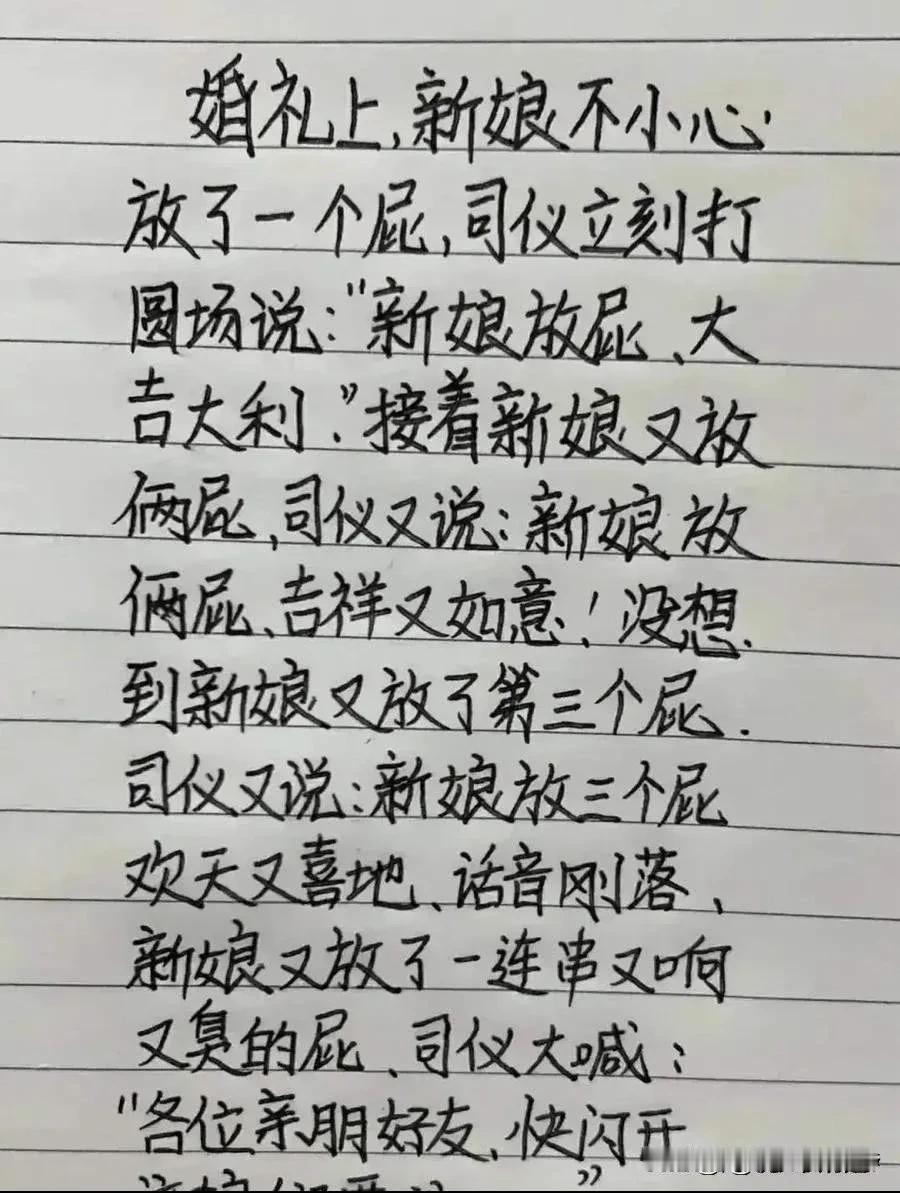 婚礼上,新娘不小心
放了一个屁,司仪立刻打
圆场说:"新娘放屁、大
吉大利."接着新娘又放
俩屁,司仪又说:新娘放
俩屁、吉祥又如意!没想
到新娘又放了第三个屁.
司仪又说:新娘放三个屁
欢天又喜地、话音刚落、
新娘又放了一连串又响
又臭的屁、司仪大喊:
"各位亲朋好友、快闪开